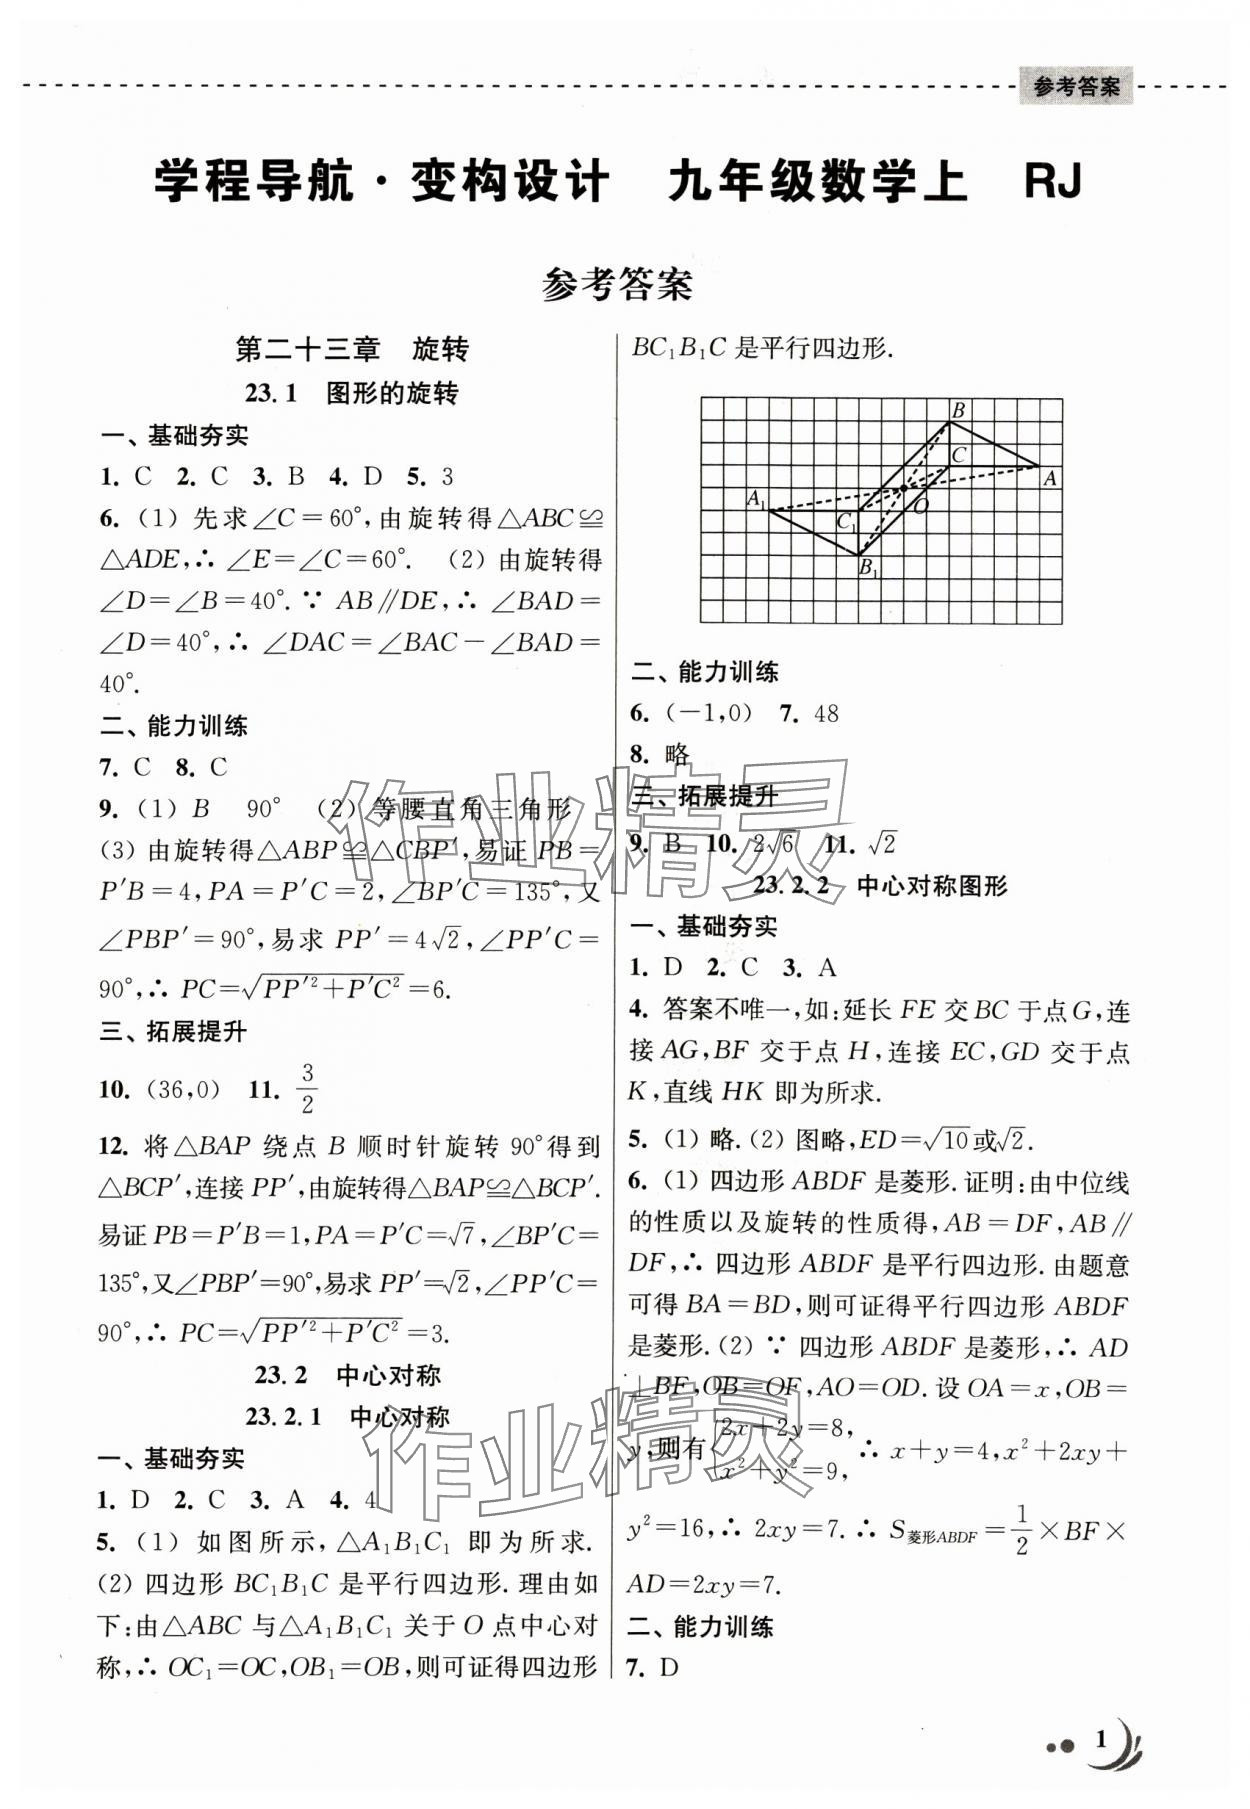 参考答案
学程导航·变构设计　九年级数学上　RJ
参考答案
第二十三章　旋转
23.1　图形的旋转
一、基础夯实
1. C　2. C　3. B　4. D　5. 3
6.（1）先求∠C＝60°,由旋转得△ABC≌
△ADE,∴ ∠E＝∠C＝60°.　（2）由旋转得
∠D＝∠B＝40°.∵ AB∥DE,∴ ∠BAD＝
∠D＝40°,∴ ∠DAC＝∠BAC－∠BAD＝
40°.
二、能力训练
7. C　8. C
9.（1）B　90°　（2）等腰直角三角形
（3）由旋转得△ABP≌△CBP′,易证 PB＝
P′B＝4,PA＝P′C＝2,∠BP′C＝135°,又
∠PBP′＝90°,易求 PP′＝4√2,∠PP′C＝
90°,∴ PC＝√(PP′²＋P′C²)＝6.
三、拓展提升
10.（36,0）　11. 3/2
12. 将△BAP 绕点 B 顺时针旋转 90°得到
△BCP′,连接 PP′,由旋转得△BAP≌△BCP′.
易证 PB＝P′B＝1,PA＝P′C＝√7,∠BP′C＝
135°,又∠PBP′＝90°,易求 PP′＝√2,∠PP′C＝
90°,∴ PC＝√(PP′²＋P′C²)＝3.
23.2　中心对称
23.2.1　中心对称
一、基础夯实
1. D　2. C　3. A　4. 4
5.（1）如图所示,△A₁B₁C₁ 即为所求.
（2）四边形 BC₁B₁C 是平行四边形.理由如
下:由△ABC 与△A₁B₁C₁ 关于 O 点中心对
称,∴ OC₁＝OC,OB₁＝OB,则可证得四边形
BC₁B₁C 是平行四边形.
B
C
A
A₁
C₁
O
B₁
二、能力训练
6.（－1,0）　7. 48
8. 略
三、拓展提升
9. B　10. 2√6　11. √2
23.2.2　中心对称图形
一、基础夯实
1. D　2. C　3. A
4. 答案不唯一,如:延长 FE 交 BC 于点 G,连
接 AG,BF 交于点 H,连接 EC,GD 交于点
K,直线 HK 即为所求.
5.（1）略.（2）图略,ED＝√10或√2.
6.（1）四边形 ABDF 是菱形.证明:由中位线
的性质以及旋转的性质得,AB＝DF,AB∥
DF,∴ 四边形 ABDF 是平行四边形.由题意
可得 BA＝BD,则可证得平行四边形 ABDF
是菱形.（2）∵ 四边形 ABDF 是菱形,∴ AD
⊥BF,OB＝OF,AO＝OD.设 OA＝x,OB＝
y,则有{2x＋2y＝8, x²＋y²＝9, ∴ x＋y＝4,x²＋2xy＋
y²＝16,∴ 2xy＝7.∴ S菱形ABDF＝1/2×BF×
AD＝2xy＝7.
二、能力训练
7. D
1
作业精灵
作业精灵